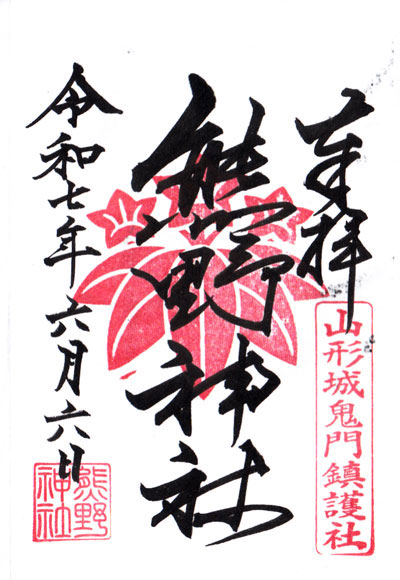 奉拝
山形城鬼門鎮護社
熊野神社
令和七年六月六日
熊野
神社